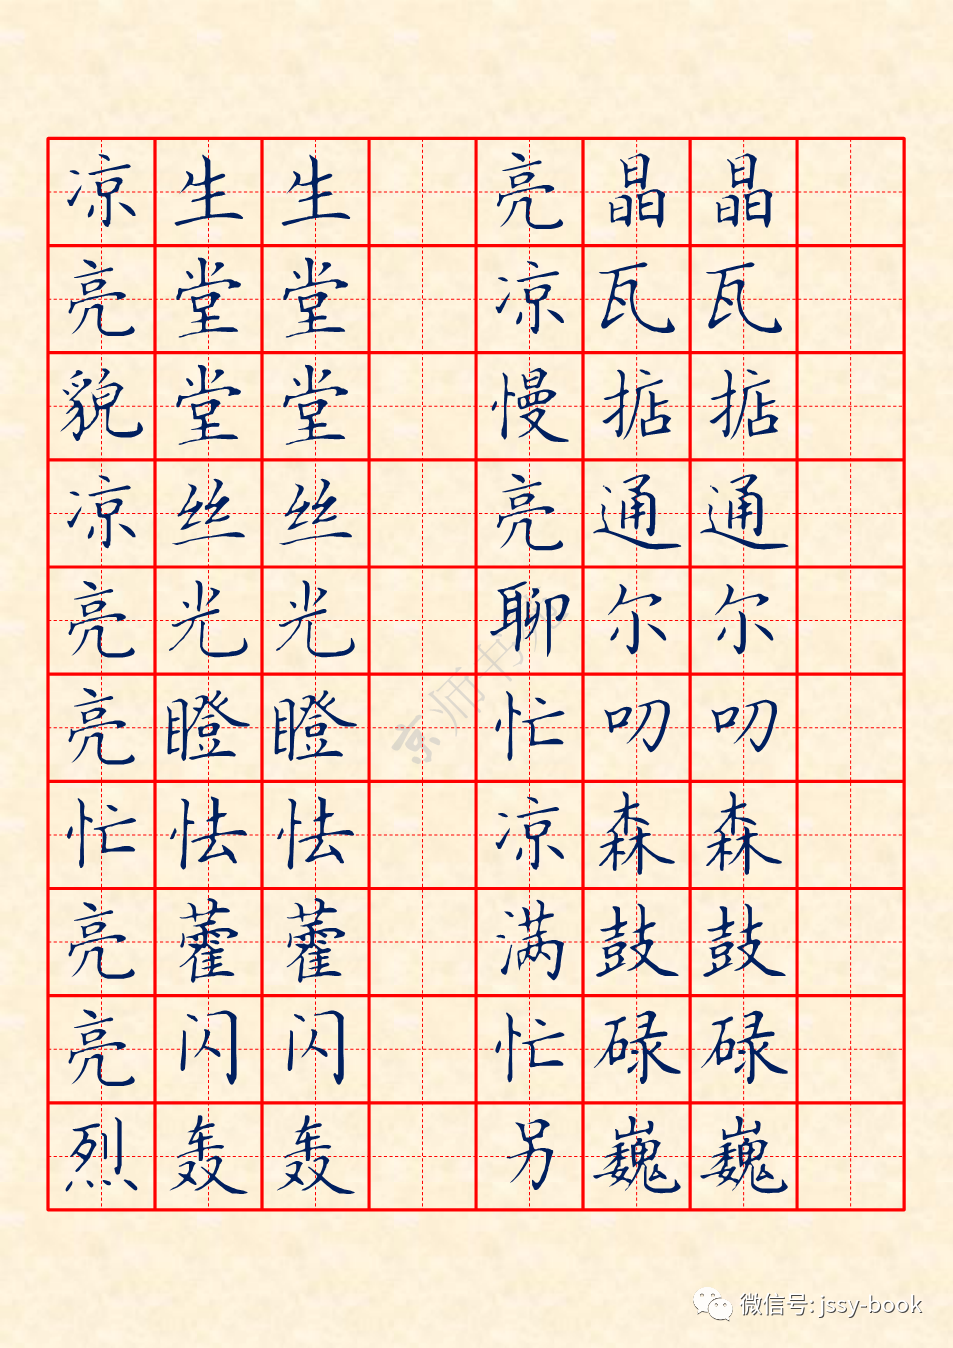 凉生生 亮晶晶
亮堂堂 凉瓦瓦
貌堂堂 慢掂掂
凉丝丝 亮通通
亮光光 聊尔尔
亮瞪瞪 忙叨叨
忙怯怯 凉森森
亮藿藿 满鼓鼓
亮闪闪 忙碌碌
烈轰轰 另巍巍
京师书
微信号: jssy-book